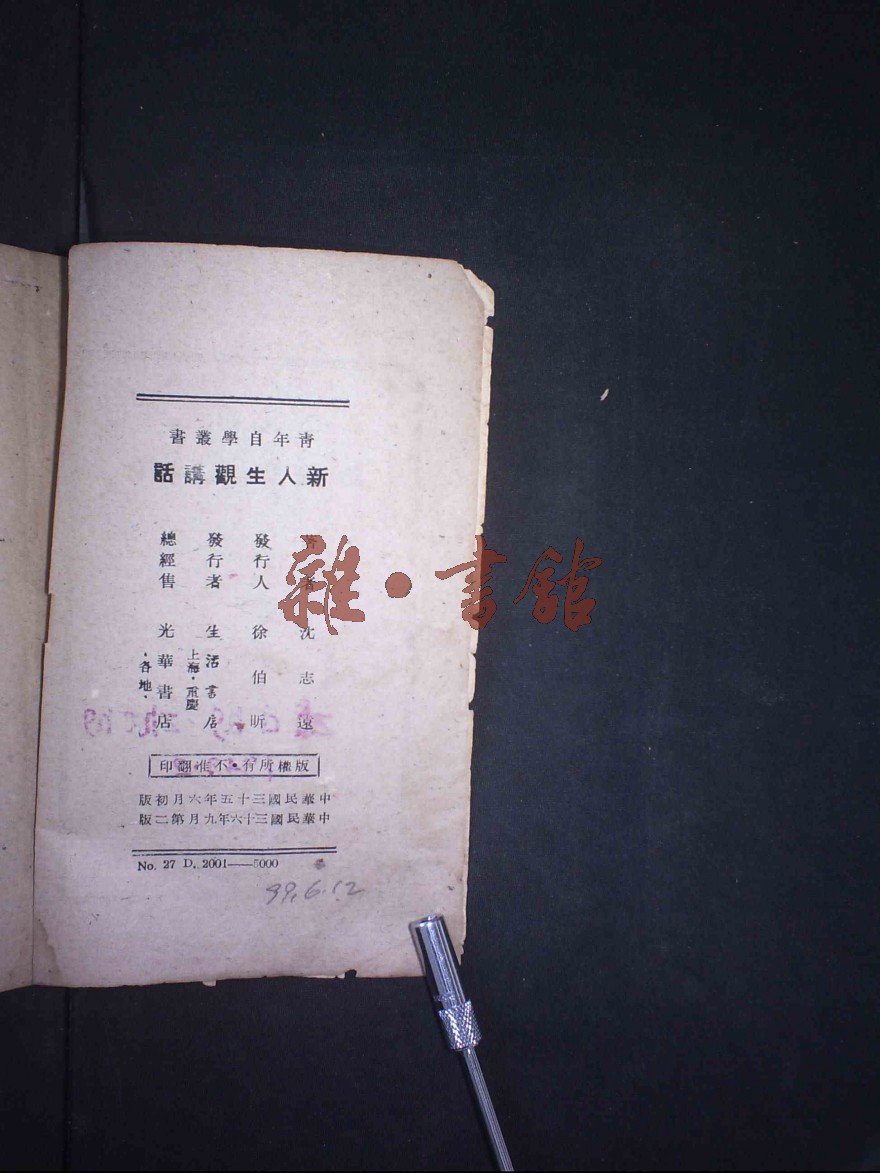 青年自學叢書
新人生觀講話
著者 沈志遠
發行人 徐伯昕
發行者 生活書店
上海・重慶
總經售 光華書店
・各地・
版權所有・不准翻印
中華民國三十五年六月初版
中華民國三十六年九月第二版
No. 27 D. 2001——5000
99.6.12
雜・書館